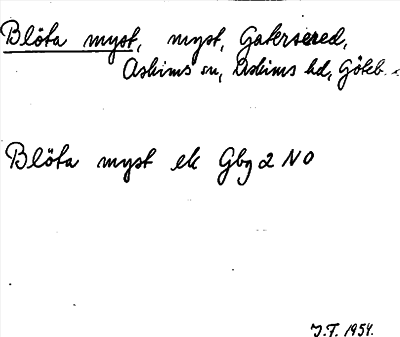 Blöta myst, myst, Gakersered,
Askims sn, Askims hd, Göteb.
Blöta myst ek Gbg 2 NO
J.F. 1954.